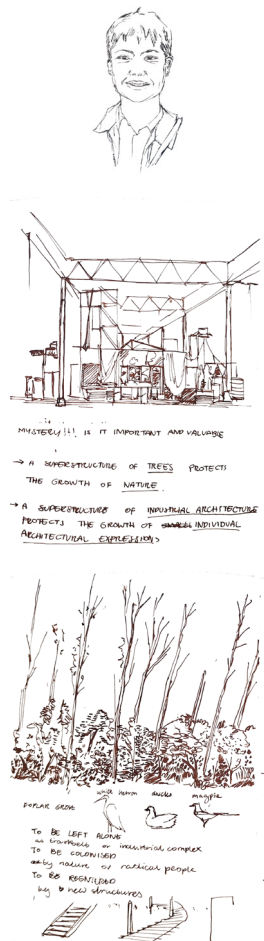 MYSTERY!!! IS IT IMPORTANT AND VALUABLE
→ A SUPERSTRUCTURE OF TREES PROTECTS
THE GROWTH OF NATURE.
→ A SUPERSTRUCTURE OF INDUSTRIAL ARCHITECTURE
PROTECTS THE GROWTH OF INDIVIDUAL
ARCHITECTURAL EXPRESSIONS
white heron ducks magpie
POPLAR GROVE
TO BE LEFT ALONE
as or industrial complex
TO BE COLONISED
by nature or radical people
TO BE REENTERED
by new structures